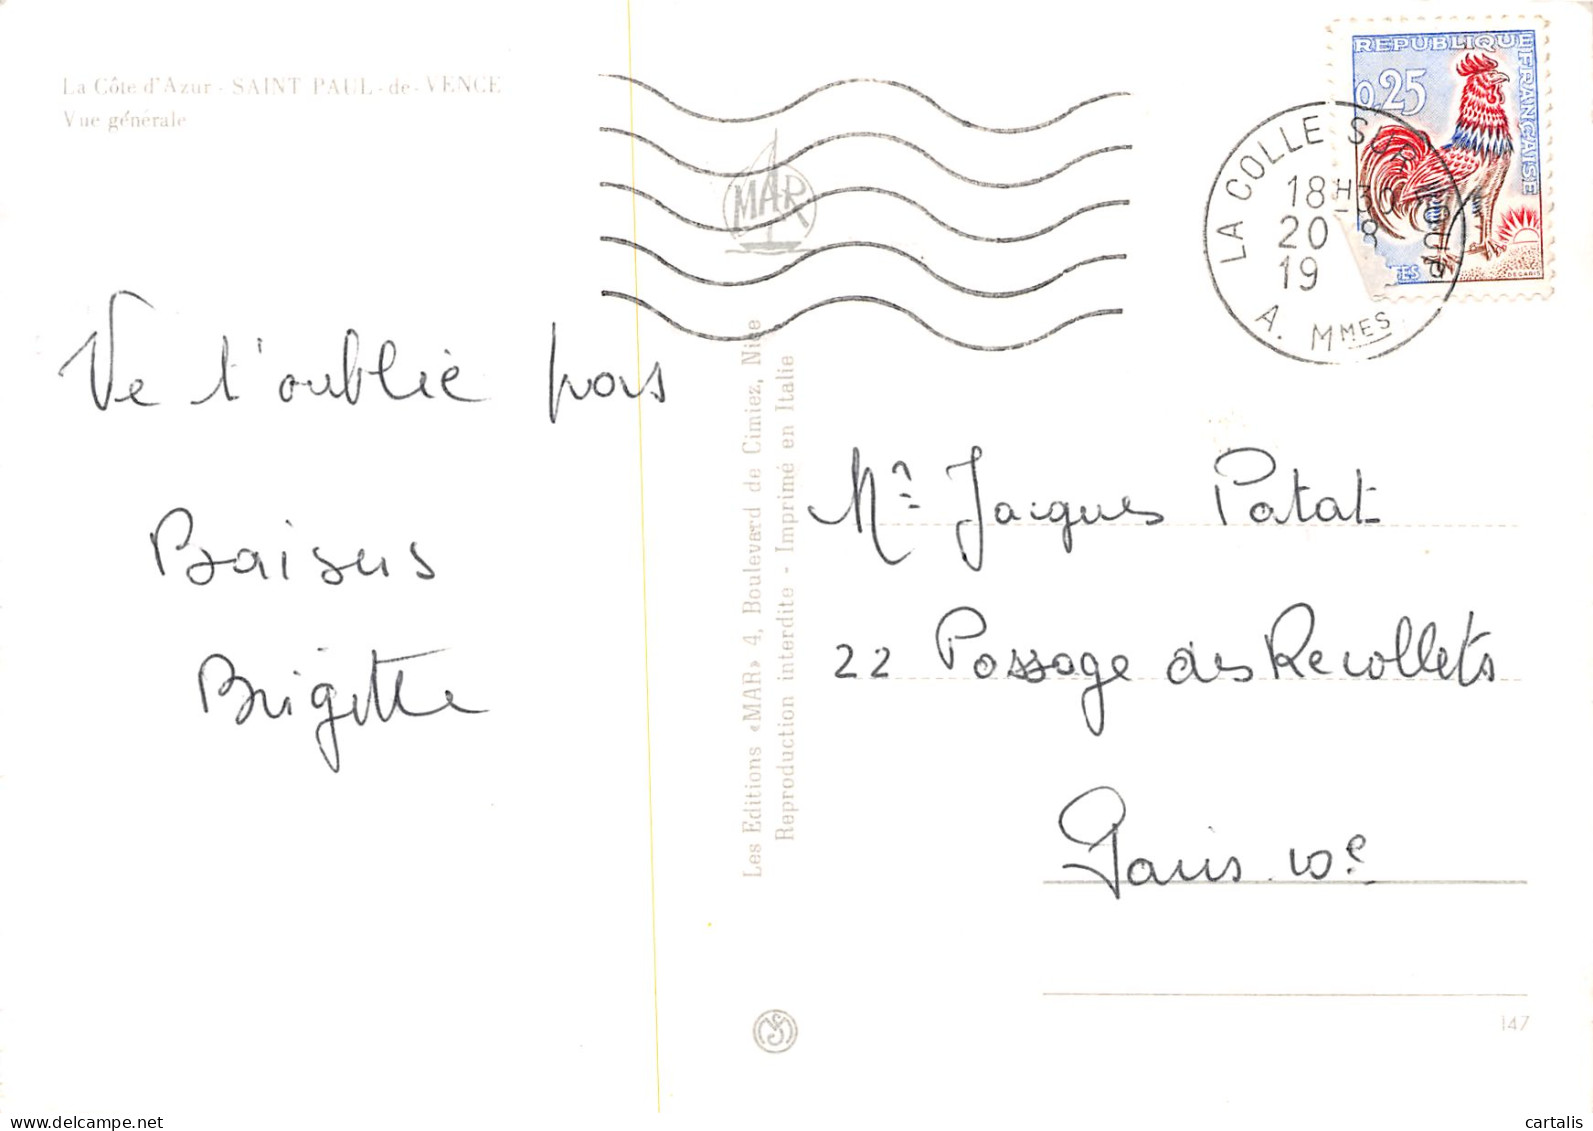 La Côte d'Azur - SAINT PAUL - de - VENCE
Vue générale
MAR
REPUBLIQUE FRANÇAISE
0,25
LA COLLE SUR LOUP
18H30
20 8
19
A. MMES
Ne t'oublie pas
Baisers
Brigitte
Les Editions «MAR» 4, Boulevard de Cimiez, Nice
Reproduction interdite - Imprimé en Italie
Mr Jacques Patat
22 Passage des Recollets
Paris 10e
147
cartalis